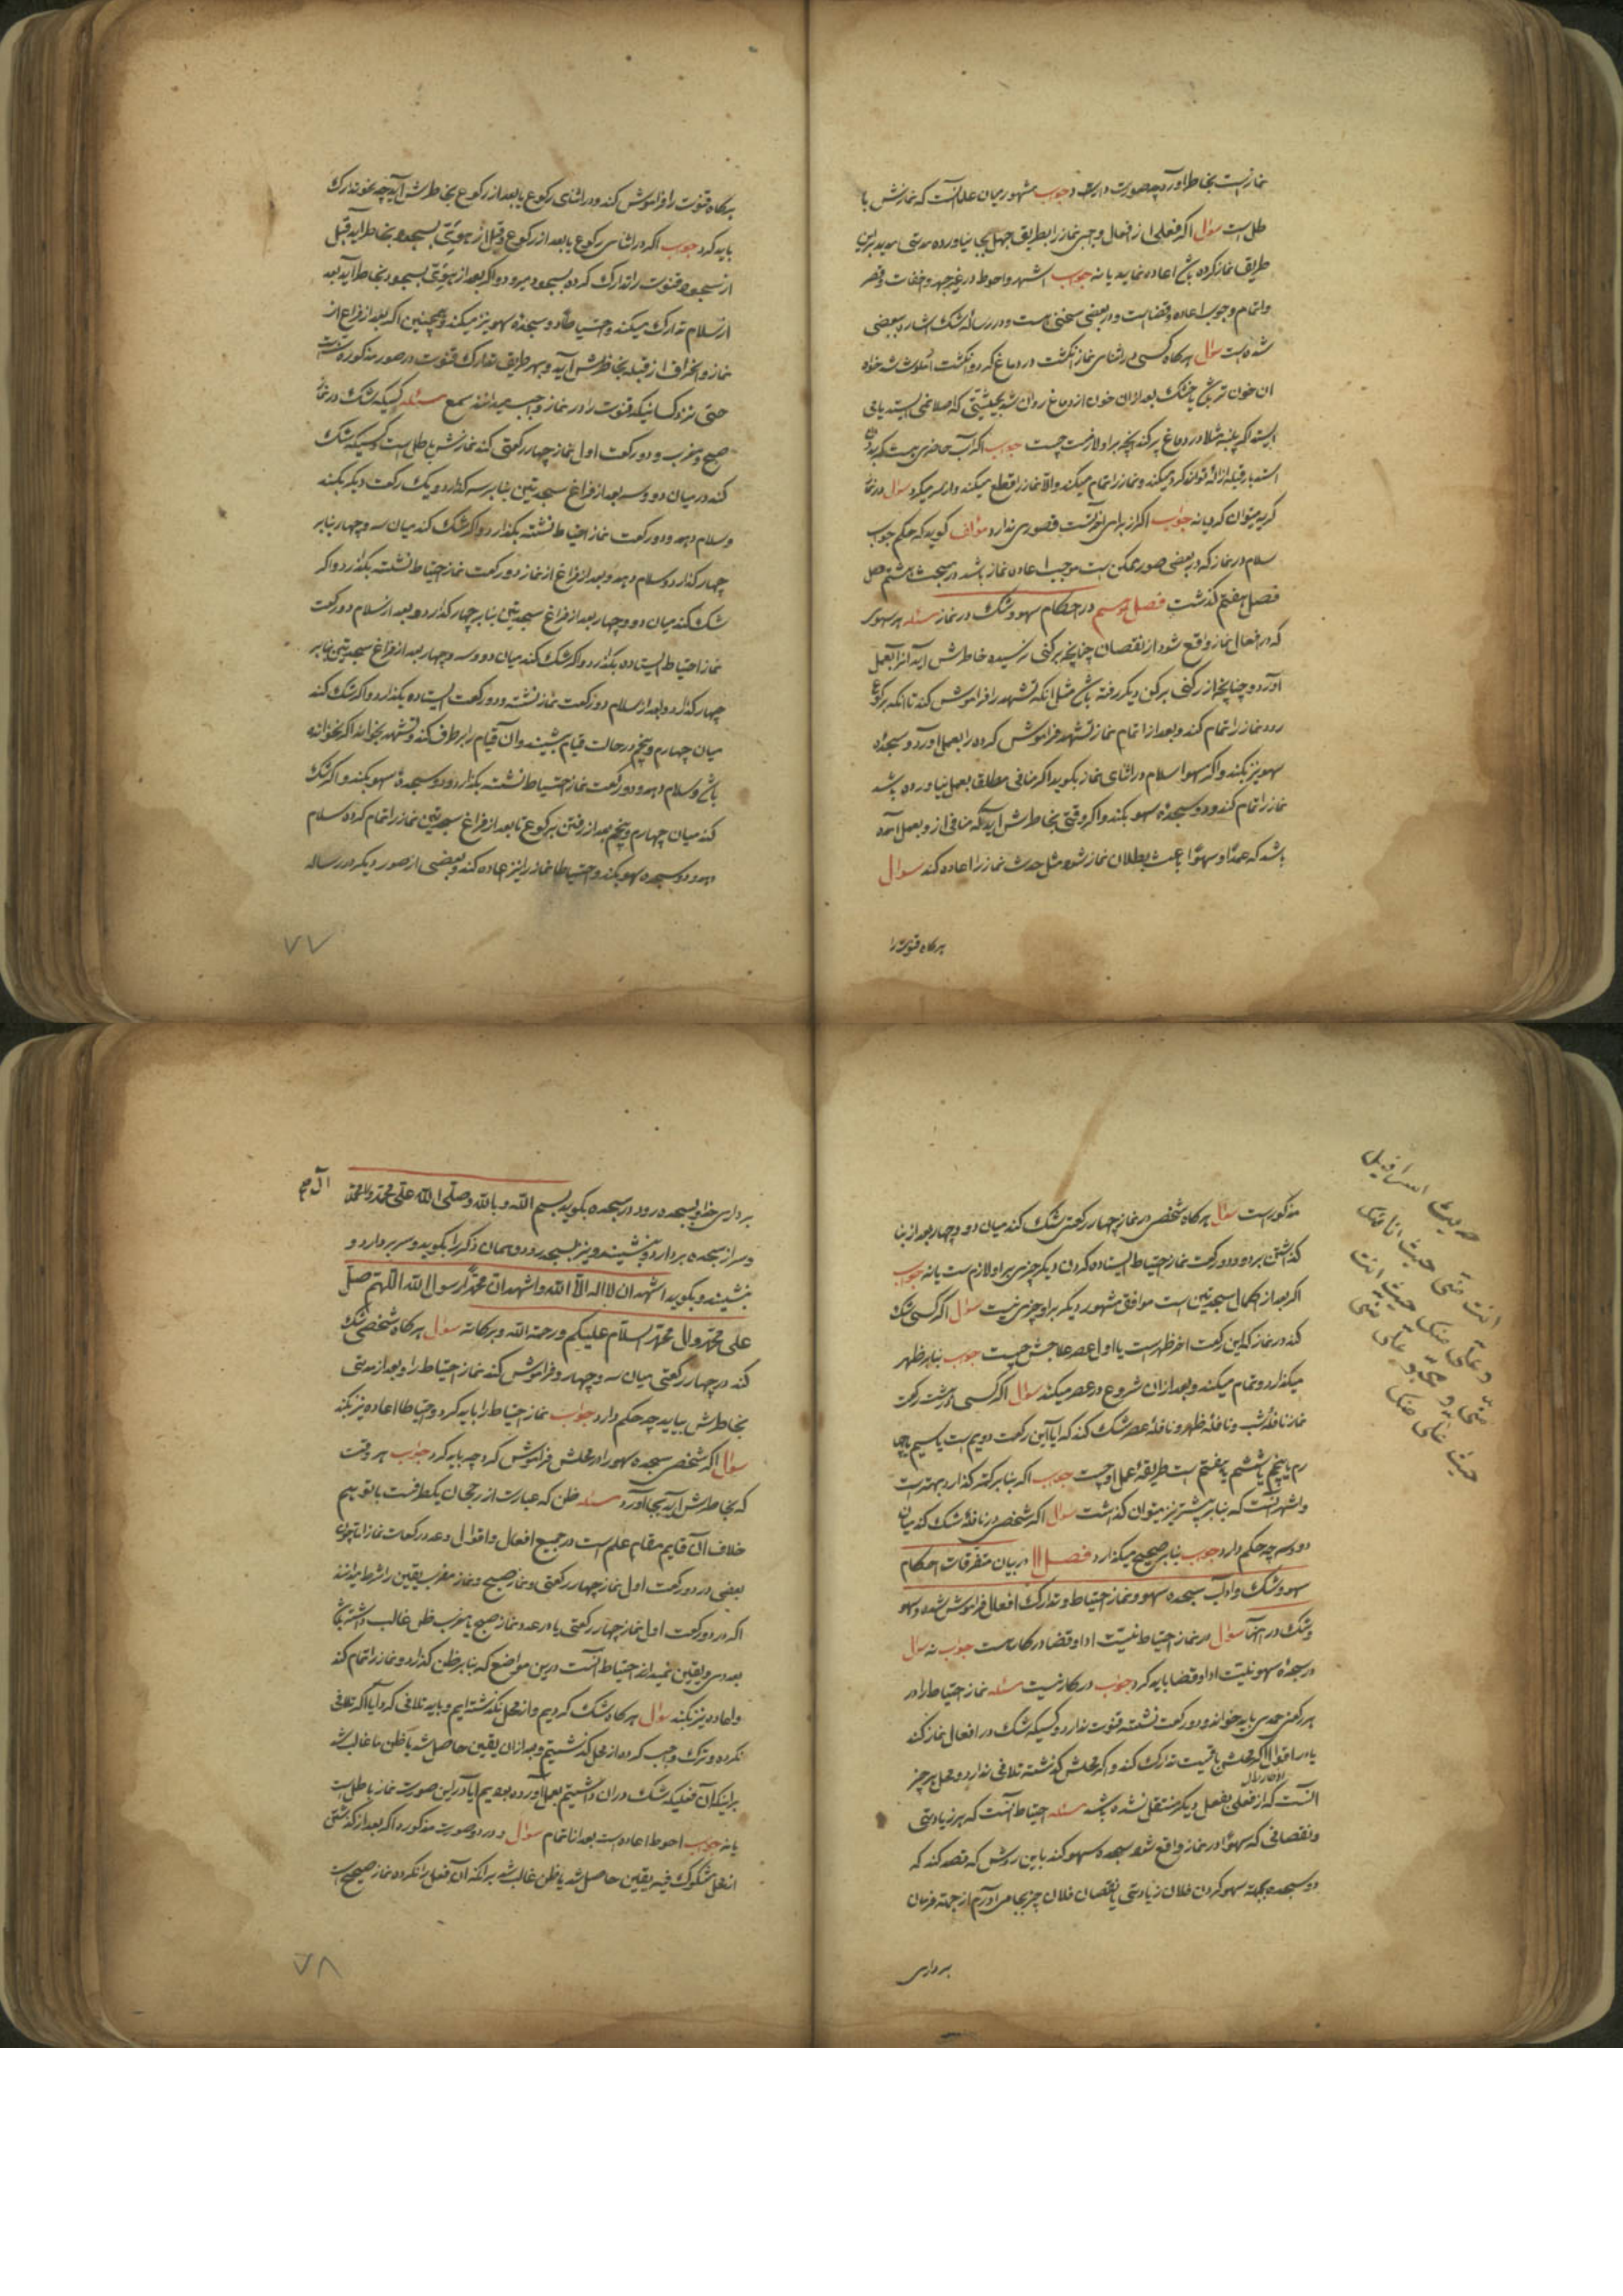 نمازست بخاطر آورد چه صورت دارد جوب مشهور میان علما آنست که نمازش با
طل است سؤال اگر فعلی از افعال واجبی نماز را بطریق جهل بجا نیاورده مدتی مدید براین
طریق نماز کرده باشد اعاده نماید یا نه جوب اشهر و احوط در غیر جهر و اخفات و قصر
واتمام وجوب اعاده و قضاست و در بعضی سخنی هست و در رساله شک اشاره ببعضی
شده است سؤال هرگاه کسی در اثنای نماز انگشت در دماغ کرد و انگشت آلوث شد خواه
ان خون تر باشد یا خشک بعد ازان خون از دماغ روان شد بحیثیتی که اصلا نمی ایستد یا می
ایستد اگر پنبه مثلا در دماغ پر کند آنچه بر او لازمست چیست جوب اگر آب حاضری هست که بدون
استدبار قبله ازاله تواند کرد میکند و نماز را تمام میکند والا نماز را قطع میکند و از سر میگیرد سؤال در نماز
گریه میتوان کرد یا نه جواب اگر از برای آخرتست قصوری ندارد مؤلف گوید که حکم جوب
سلام در نماز که در بعضی صور ممکن است موجب اعاده نماز باشد در مبحث هشتم اصل
فصل هفتم گذشت فصل نهم در احکام سهو و شک در نماز مسئله هر سهوی
که در افعال نماز واقع شود از نقصان چنانچه برکنی نرسیده خاطرش آید آنرا بعمل
آورد و چنانچه از رکنی برکن دیگر رفته باشد مثل انکه تشهد را فراموش کند تا انکه برکوع
رود نماز را تمام کند و بعد از اتمام نماز تشهد فراموش کرده را بعمل آورد و سجده
سهو نیز بکند و اگر سهوا سلام در اثنای نماز بگوید اگر منافی مطلقا بعمل نیاورده باشد
نماز را تمام کند و دو سجده سهو بکند و اگر وقتی بخاطرش آید که منافی از و بعمل آمده
باشد که عمدا و سهوا باعث بطلان نماز شود مثل حدث نماز را اعاده کند سوال
هرگاه قنوت را
هرگاه قنوت را فراموش کند و در اثنای رکوع یا بعد از رکوع بخاطرش آید چه نحو تدارک
باید کرد جوب اگر در اثنای رکوع یا بعد از رکوع و قبل از هوئتی بسجود بخاطر آید قبل
از سجود قنوت را تدارک کرده بسجود میرود و اگر بعد از هوئتی بسجود بخاطر آید بعد
از سلام تدارک میکند و احتیاطا دو سجده سهو نیز میکند و همچنین اگر بعد از فراغ از
نماز و انحراف از قبله بخاطرش آید و بهر طریق تدارک قنوت در صور مذکوره سنتست
حتی نزد کسانیکه قنوت را در نماز واجب میدانند سمع مسئله کسیکه شک در نماز
صبح و مغرب و دو رکعت اول نماز چهار رکعتی کند نمازش باطل است و کسیکه شک
کند در میان دو و سه بعد از فراغ سجدتین بنابر سه گذارد و یک رکعت دیگر بکند
و سلام دهد و دو رکعت نماز احتیاط نشسته بگذارد و اگر شک کند میان سه و چهار بنابر
چهار گذارد و سلام دهد و بعد از فراغ از نماز دو رکعت نماز احتیاط نشسته بگذارد و اگر
شک کند میان دو و چهار بعد از فراغ سجدتین بنابر چهار گذارد و بعد از سلام دو رکعت
نماز احتیاط ایستاده بگذارد و اگر شک کند میان دو و سه و چهار بعد از فراغ سجدتین بنابر
چهار گذارد و بعد از سلام دو رکعت نماز نشسته و دو رکعت ایستاده بگذارد و اگر شک کند
میان چهارم و پنجم در حالت قیام بنشیند و آن قیام را برطرف کند و تشهد بخواند اگر نخوانده
باشد و سلام دهد و دو رکعت نماز احتیاط نشسته بگذارد و دو سجده سهو بکند و اگر شک
کند میان چهارم و پنجم بعد از رفتن برکوع تا بعد از فراغ سجدتین نماز را تمام کرده سلام
دهد و دو سجده سهو بکند و احتیاطا نماز را نیز اعاده کند و بعضی از صور دیگر در رساله
۷۷
مذکور است سؤال هرگاه شخصی در نماز چهار رکعتی شک کند میان دو و چهار بعد از بنا
گذاشتن بر او و دو رکعت نماز احتیاط ایستاده کردن دیگر چیزی بر او لازمست یا نه جوب
اگر بعد از اکمال سجدتین است موافق مشهور دیگر بر او چیزی نیست سؤال اگر کسی شک
کند در نماز که این رکعت آخر ظهر است یا اول عصر علاجش چیست جوب بنابر ظهر
میگذارد و تمام میکند و بعد ازان شروع در عصر میکند سؤال اگر کسی در هشت رکعت
نماز نافله شب و نافله ظهر و نافله عصر شک کند که آیا این رکعت دویم است یا سیم یا چها
رم یا پنجم یا ششم یا هفتم است طریقه عمل او چیست جوب اگر بنابر کمتر گذارد بهتر است
و اشهر آنست که بنابر بیشتر نیز میتوان گذاشت سؤال اگر شخصی در نافله شک کند میان
دو و سه چه حکم دارد جوب بنابر صحیح میگذارد فصل ۱۱ در بیان متفرقات احکام
سهو و شک و آداب سجده سهو و نماز احتیاط و تدارک افعال فراموش شده و سهو
و شک در آنها سؤال در نماز احتیاط نیت ادا و قضا در کار است جوب نه سؤال
در سجده سهو نیت ادا و قضا باید کرد جوب در کار نیست مسئله نماز احتیاط را در
هر رکعتی حمدی باید خواند و دو رکعت نشسته قنوت ندارد و کسیکه شک در افعال نماز کند
یا در اقوال اگر محلش باقیست تدارک کند و اگر محلش گذشته تلافی ندارد و محل هر چیز
آنست که از فعلی بفعل دیگر منتقل نشده باشد مسئله احتیاط آنست که هر زیادتی
و نقصانی که سهوا در نماز واقع شود سجده سهو کند باین روش که قصد کند که
دو سجده بجهة سهو کردن فلان زیادتی یا نقصان فلان چیز بجا می آورم از جهة فرمان
برداری
حدیث اسرافیل
انت منی حیث انا منک
برداری خدا و بسجده رود و در سجده بگوید بسم الله و بالله و صلی الله علی محمد و آل محمد
و سر از سجده بردارد و بنشیند و نیز بسجده رود و همان ذکر را بگوید و سر بردارد و
بنشیند و بگوید اشهد ان لا اله الا الله و اشهد ان محمدا رسول الله اللهم صل
علی محمد و آل محمد السلام علیکم و رحمة الله و برکاته سؤال هرگاه شخصی شک
کند در چهار رکعتی میان سه و چهار و فراموش کند نماز احتیاط را و بعد از مدتی
بخاطرش بیاید چه حکم دارد جواب نماز احتیاط را باید کرد و احتیاطا اعاده نیز بکند
سؤال اگر شخصی سجده سهو را در محلش فراموش کرد چه باید کرد جواب هر وقت
که بخاطرش آید بجا آورد مسئله ظن که عبارت از رجحان یکطرفست با توهم
خلاف آن قایم مقام علم است در جمیع افعال و اقوال و عدد رکعات نماز
بعضی در دو رکعت اول نماز چهار رکعتی و نماز صبح و نماز مغرب یقین را شرط میدانند
اگر در دو رکعت اول نماز چهار رکعتی یا در عدد نماز صبح یا مغرب ظن غالب داشته باشد
بعددی و یقین نمیداند احتیاط آنست درین مواضع که بنابر ظن گذارد و نماز را تمام کند
و اعاده نیز بکند سؤال هرگاه شک کردیم و از محل نگذشته ایم و باید تلافی کرد آیا اگر تلافی
نکرده و ترک واجب کرد و از محل گذشتیم و بعد ازان یقین حاصل شد یا ظن ما غالب شد
براینکه آن فعلیکه شک در ان داشتیم بعمل آورده بودیم آیا در این صورت نماز باطل است
یا نه جوب احوط اعاده است بعد از اتمام سؤال و در دو صورت مذکوره اگر بعد از گذشتن
از محل مشکوک فیه یقین حاصل شد یا ظن غالب شد برانکه آن فعل را نکرده نماز صحیح است
۷۸